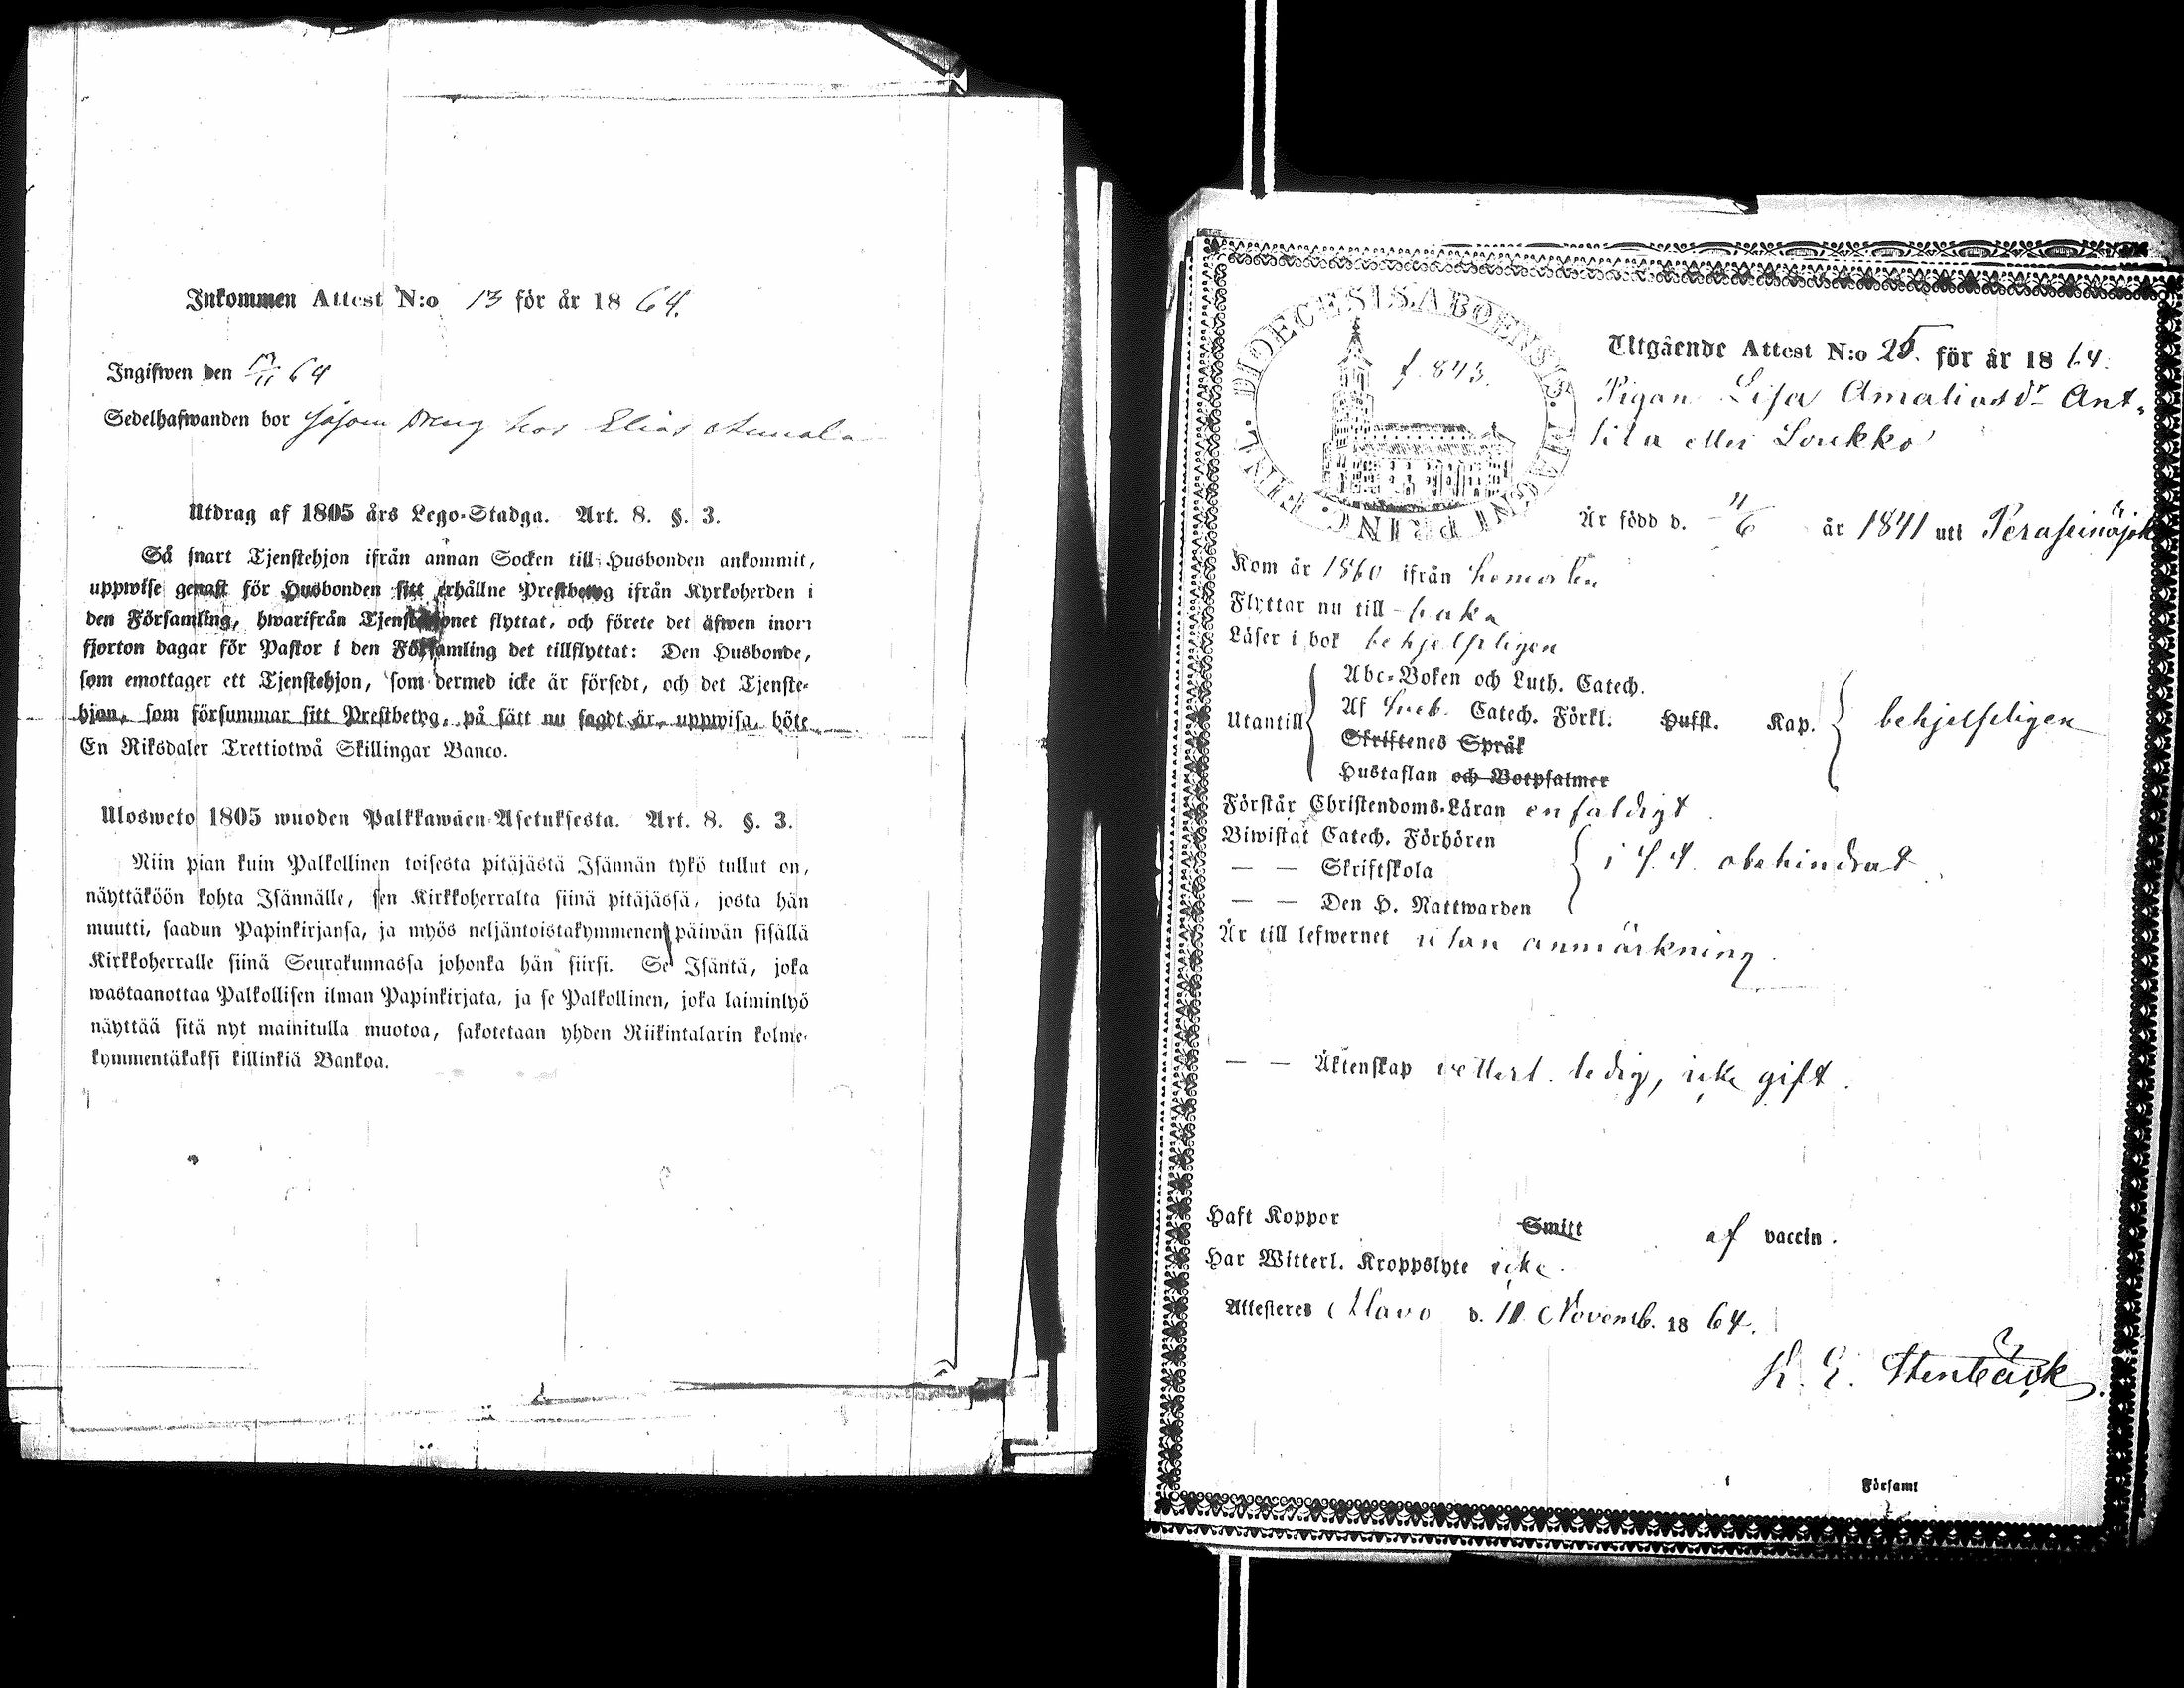 Inkommen Attest N:o 13 för år 18 64.
Ingifwen den 13/11 64
Sedelhafwanden bor såsom Dreng hos Elias
Utdrag af 1805 års Lego-Stadga. Art. 8. §. 3.
Så snart Tjenstehjon ifrån annan Socken till Husbonden ankommit,
uppwise genast för Husbonden sitt erhållne Prestbetyg ifrån Kyrkoherden i
den Församling, hwarifrån Tjenstehjonet flyttat, och förete det äfwen inom
fjorton dagar för Pastor i den Församling det tillflyttat: Den Husbonde,
som emottager ett Tjenstehjon, som dermed icke är försedt, och det Tjenste-
hjon, som försummar sitt Prestbetyg, på sätt nu sagdt är, uppwisa, böte
En Riksdaler Trettiotwå Skillingar Banco.
Ulosweto 1805 wuoden Palkkawäen-Asetuksesta. Art. 8. §. 3.
Niin pian kuin Palkollinen toisesta pitäjästä Isännän tykö tullut on,
näyttäköön kohta Isännälle, sen Kirkkoherralta siinä pitäjässä, josta hän
muutti, saadun Papinkirjansa, ja myös neljäntoistakymmenen päiwän sisällä
Kirkkoherralle siinä Seurakunnassa johonka hän siirsi. Se Isäntä, joka
wastaanottaa Palkollisen ilman Papinkirjata, ja se Palkollinen, joka laiminlyö
näyttää sitä nyt mainitulla muotoa, sakotetaan yhden Riikintalarin kolme-
kymmentäkaksi killinkiä Bankoa.
DIOECESIS. ABOENSIS. MAGNI PRINC. FINL.
f. 843.
Utgående Attest N:o 25. för år 18 64.
Pigan Lisa Amaliasdr Ant-
tila eller Loukko
Är född d. 11/6 år 1841 uti Peraseinäjoki
Kom år 1860 ifrån hemorten
Flyttar nu till -baka
Läser i bok behjelpligen
Utantill
Abc-Boken och Luth. Catech.
Af Sveb. Catech. Förkl. Husst. Kap.
Skriftenes Språk
Hustaflan och Botpsalmer
behjelpligen
Förstår Christendoms-Läran enfaldigt
Biwistat Catech. Förhören
— — Skriftskola
— — Den H. Nattwarden
obehindrat
Är till lefwernet utan anmärkning.
— — Äktenskap vetterl. ledig, icke gift.
Haft Koppor Smitt af vaccin.
Har Witterl. Kroppslyte icke.
Attesteres Alavo d. 10 Novemb. 18 64.
K. E. Stenbäck
Församl